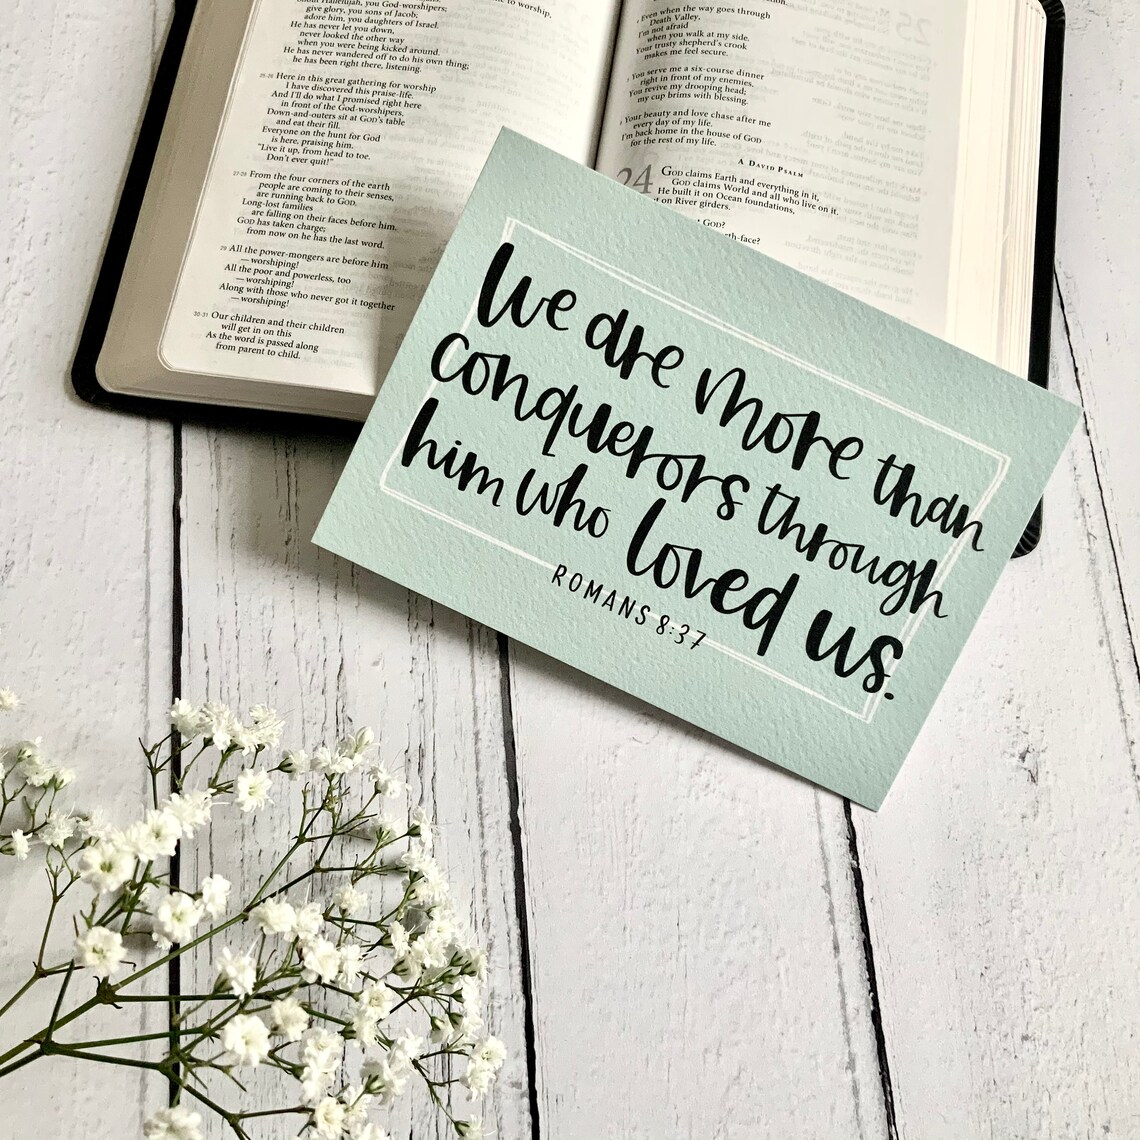 Hallelujah, you GOD-worshipers;
give glory, you sons of Jacob;
adore him, you daughters of Israel.
He has never let you down,
never looked the other way
when you were being kicked around.
He has never wandered off to do his own thing;
he has been right there, listening.
25-26 Here in this great gathering for worship
I have discovered this praise-life.
And I'll do what I promised right here
in front of the GOD-worshipers.
Down-and-outers sit at GOD's table
and eat their fill.
Everyone on the hunt for God
is here, praising him.
"Live it up, from head to toe.
Don't ever quit!"
27-29 From the four corners of the earth
people are coming to their senses,
are running back to GOD.
Long-lost families
are falling on their faces before him.
GOD has taken charge;
from now on he has the last word.
29 All the power-mongers are before him
—worshiping!
All the poor and powerless, too
—worshiping!
Along with those who never got it together
—worshiping!
30-31 Our children and their children
will get in on this
As the word is passed along
from parent to child.
to worship,
Even when the way goes through
Death Valley,
I'm not afraid
when you walk at my side.
Your trusty shepherd's crook
makes me feel secure.
You serve me a six-course dinner
right in front of my enemies.
You revive my drooping head;
my cup brims with blessing.
Your beauty and love chase after me
every day of my life.
I'm back home in the house of GOD
for the rest of my life.
A DAVID PSALM
24 GOD claims Earth and everything in it,
GOD claims World and all who live on it.
He built it on Ocean foundations,
it on River girders.
GOD?
th-face?
We are more than
conquerors through
him who loved us.
ROMANS 8:37